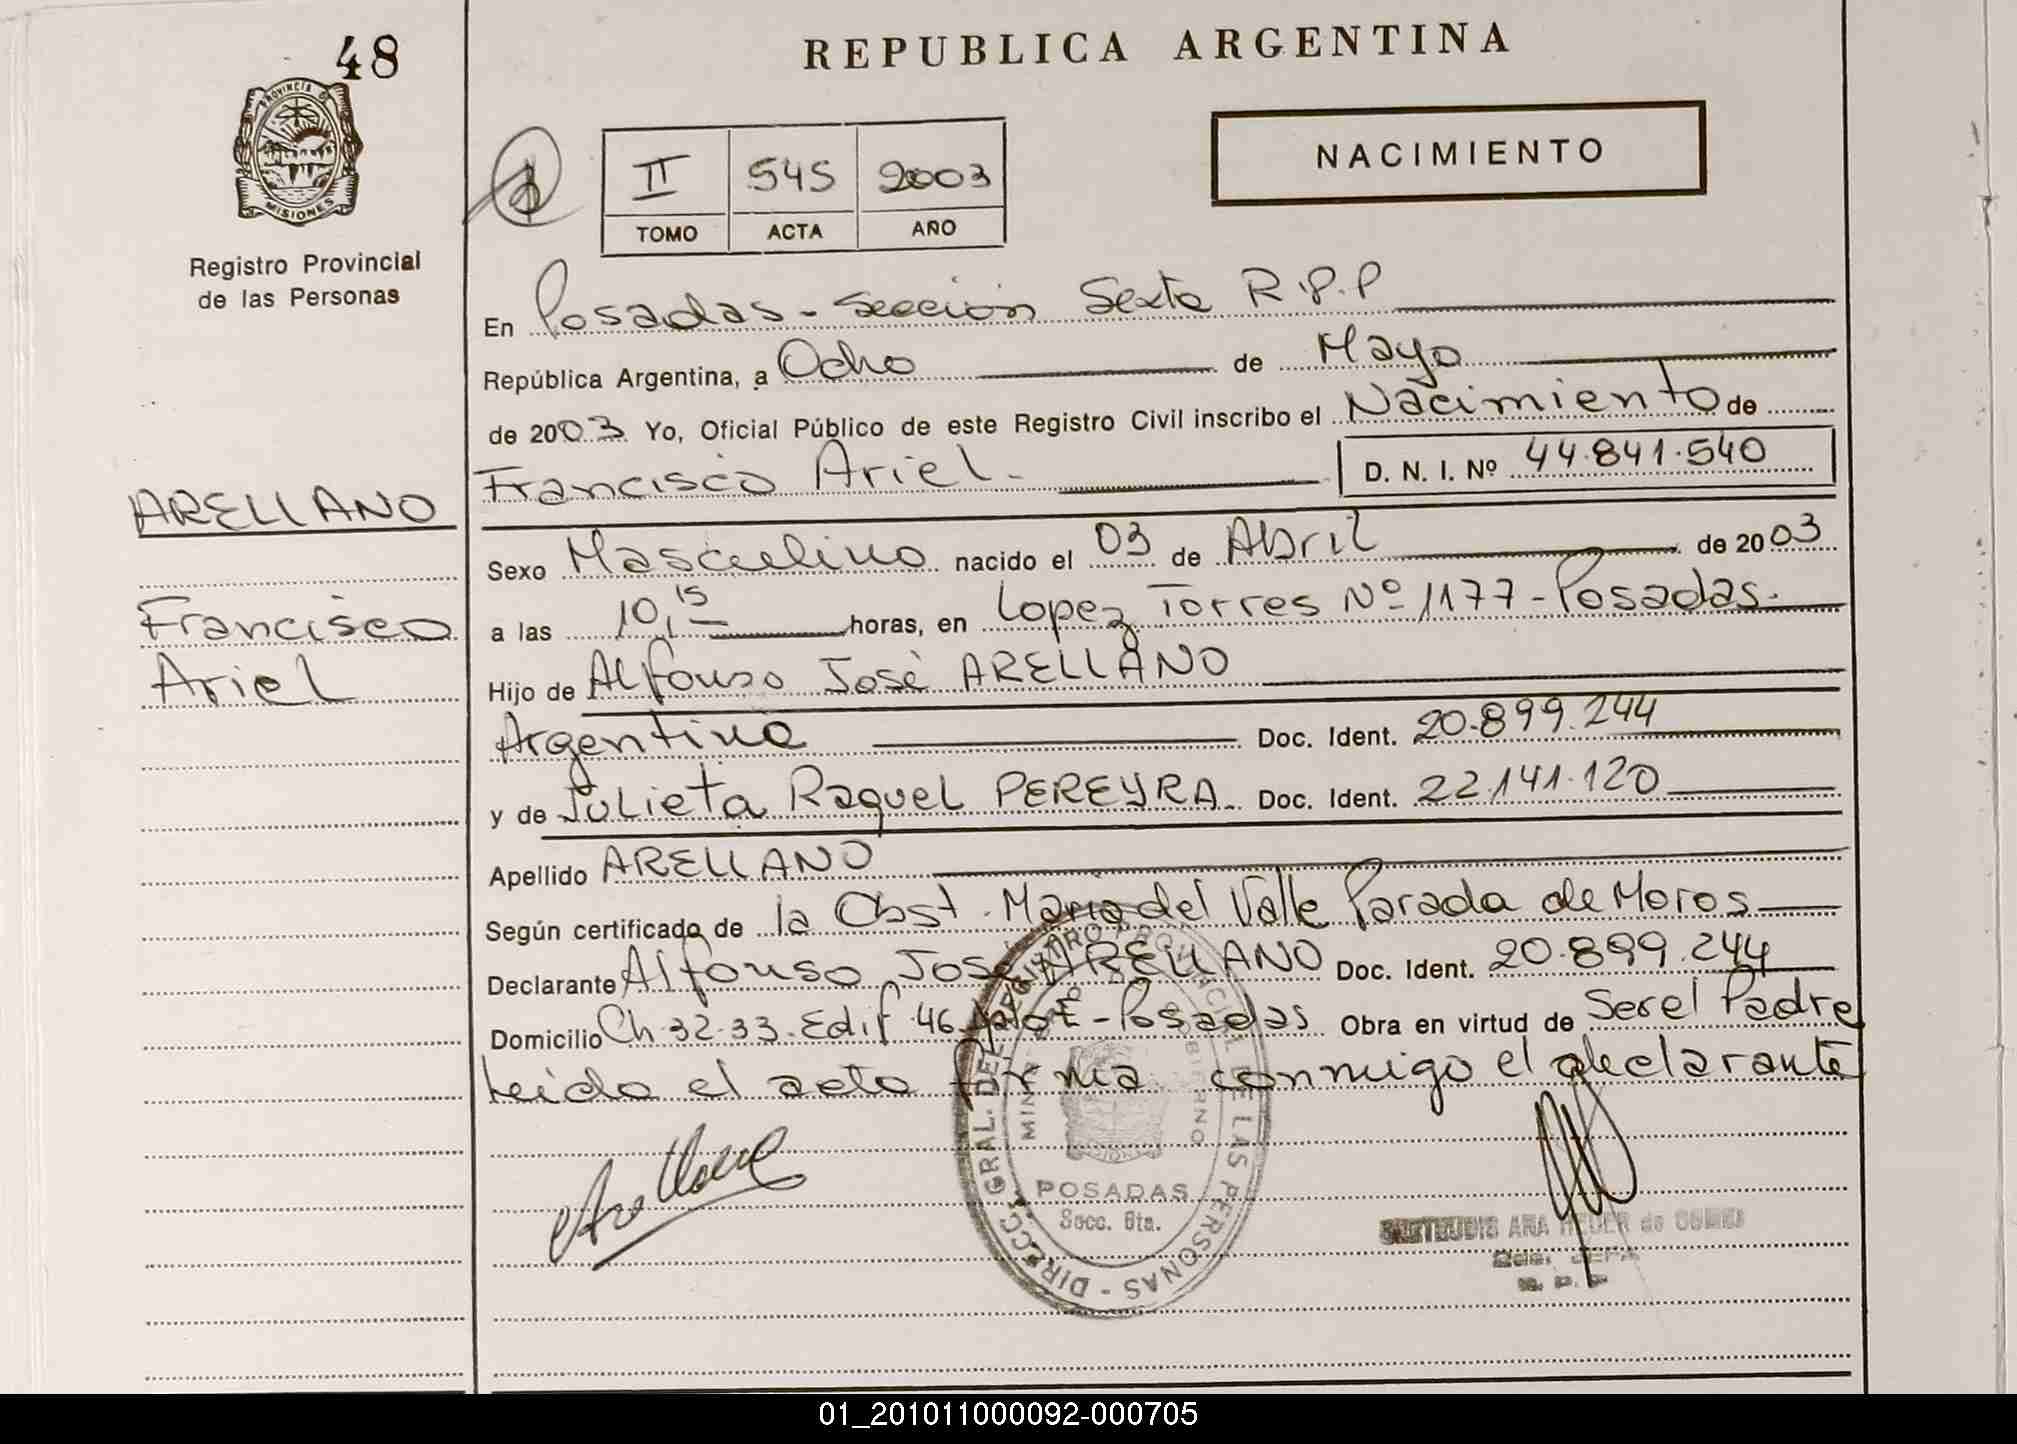 48
PROVINCIA DE
MISIONES
Registro Provincial
de las Personas
ARELLANO
Francisco
Ariel
REPUBLICA ARGENTINA
NACIMIENTO
II 545 2003
TOMO ACTA AÑO
En Posadas - Sección Sexta R.P.P
República Argentina, a Ocho de Mayo
de 2003 Yo, Oficial Público de este Registro Civil inscribo el Nacimiento de
Francisco Ariel. D. N. I. Nº 44.841.540
Sexo Masculino nacido el 03 de Abril de 2003
a las 10,15 horas, en Lopez Torres Nº 1177 - Posadas.
Hijo de Alfonso José ARELLANO
Argentino Doc. Ident. 20.899.244
y de Julieta Raquel PEREYRA Doc. Ident. 22.141.120
Apellido ARELLANO
Según certificado de la Obst. Maria del Valle Parada de Moros
Declarante Alfonso José ARELLANO Doc. Ident. 20.899.244
Domicilio Ch. 32-33. Edif. 46 - Posadas Obra en virtud de Ser el Padre
Leido el acta firma conmigo el declarante
Arellano
DIRECC. GRAL. DEL REGISTRO PROVINCIAL DE LAS PERSONAS
POSADAS
Secc. 6ta.
01_201011000092-000705